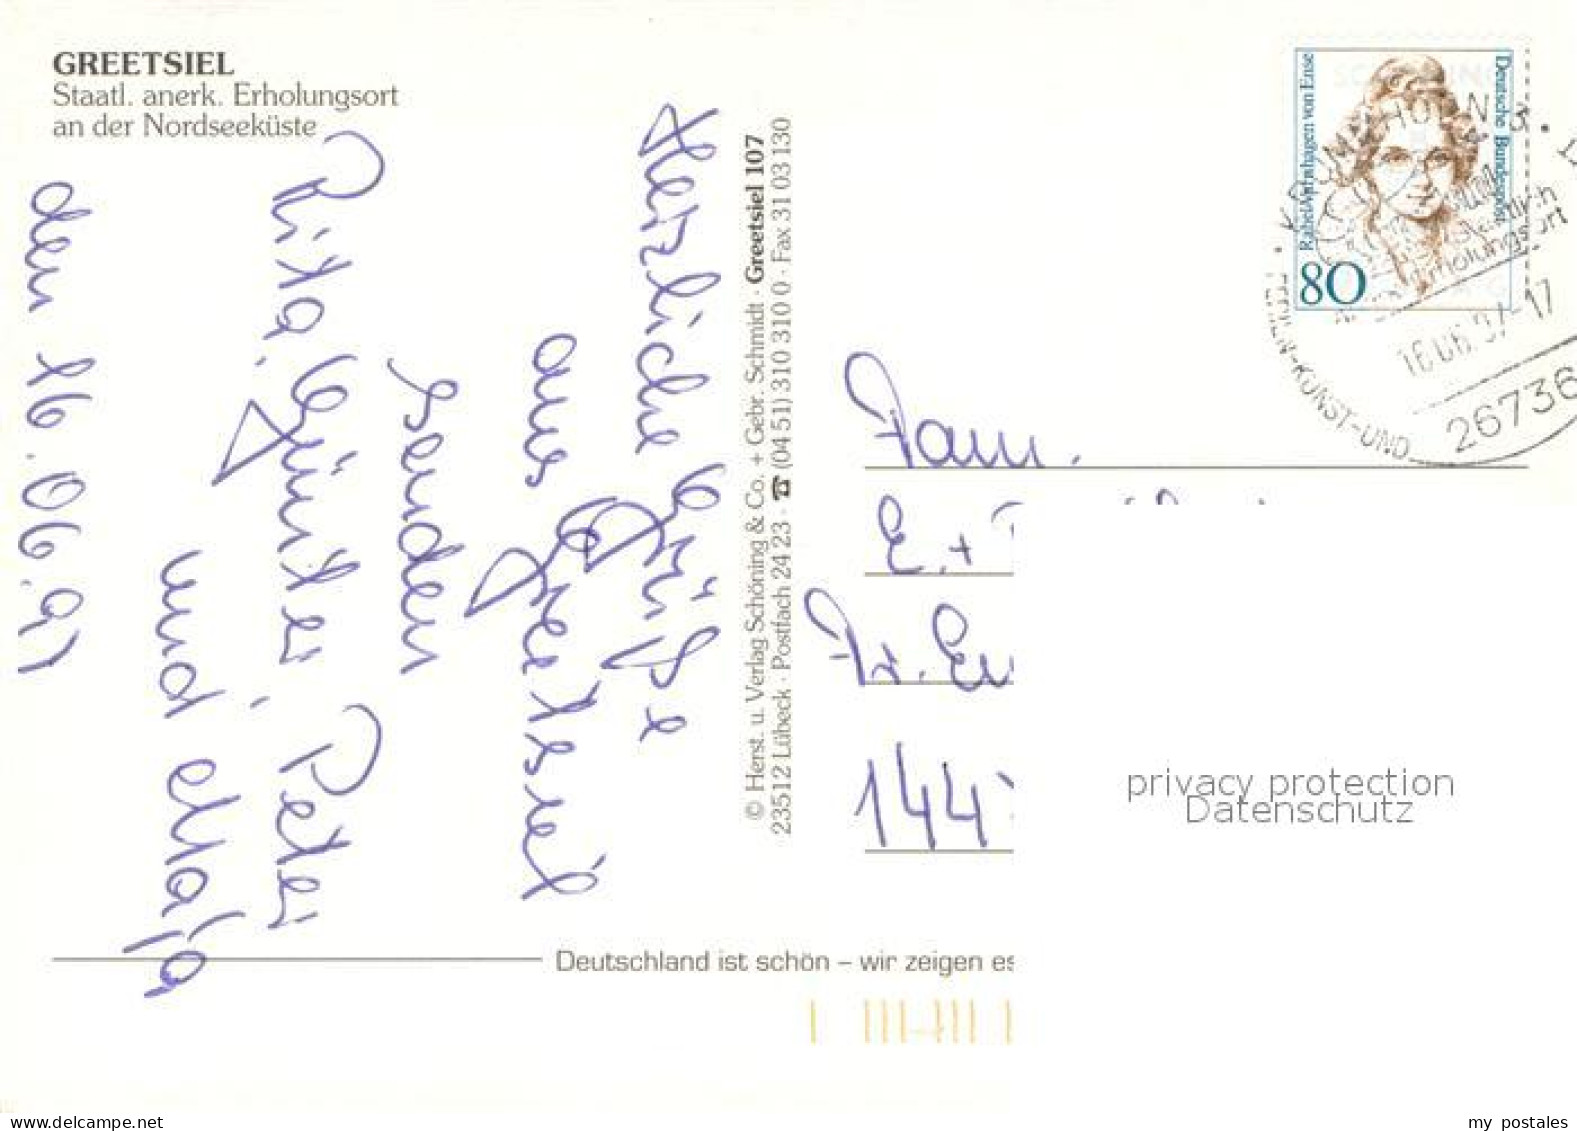 GREETSIEL
Staatl. anerk. Erholungsort
an der Nordseeküste
Herzliche Grüße
aus Greetsiel
senden
Rita, Günter, Peter
und Maja
den 16.06.97
© Herst. u. Verlag Schöning & Co. + Gebr. Schmidt · Greetsiel 107
23512 Lübeck · Postfach 24 23 · ☎ (04 51) 310 310 0 · Fax 31 03 130
Rahel Varnhagen von Ense
Deutsche Bundespost
80
KRUMMHÖRN 3
Erholungsort
16.06.97-17
FERIEN-KUNST-UND
26736
Fam.
E. +
Fr.
144
privacy protection
Datenschutz
Deutschland ist schön – wir zeigen es
www.delcampe.net
my postales